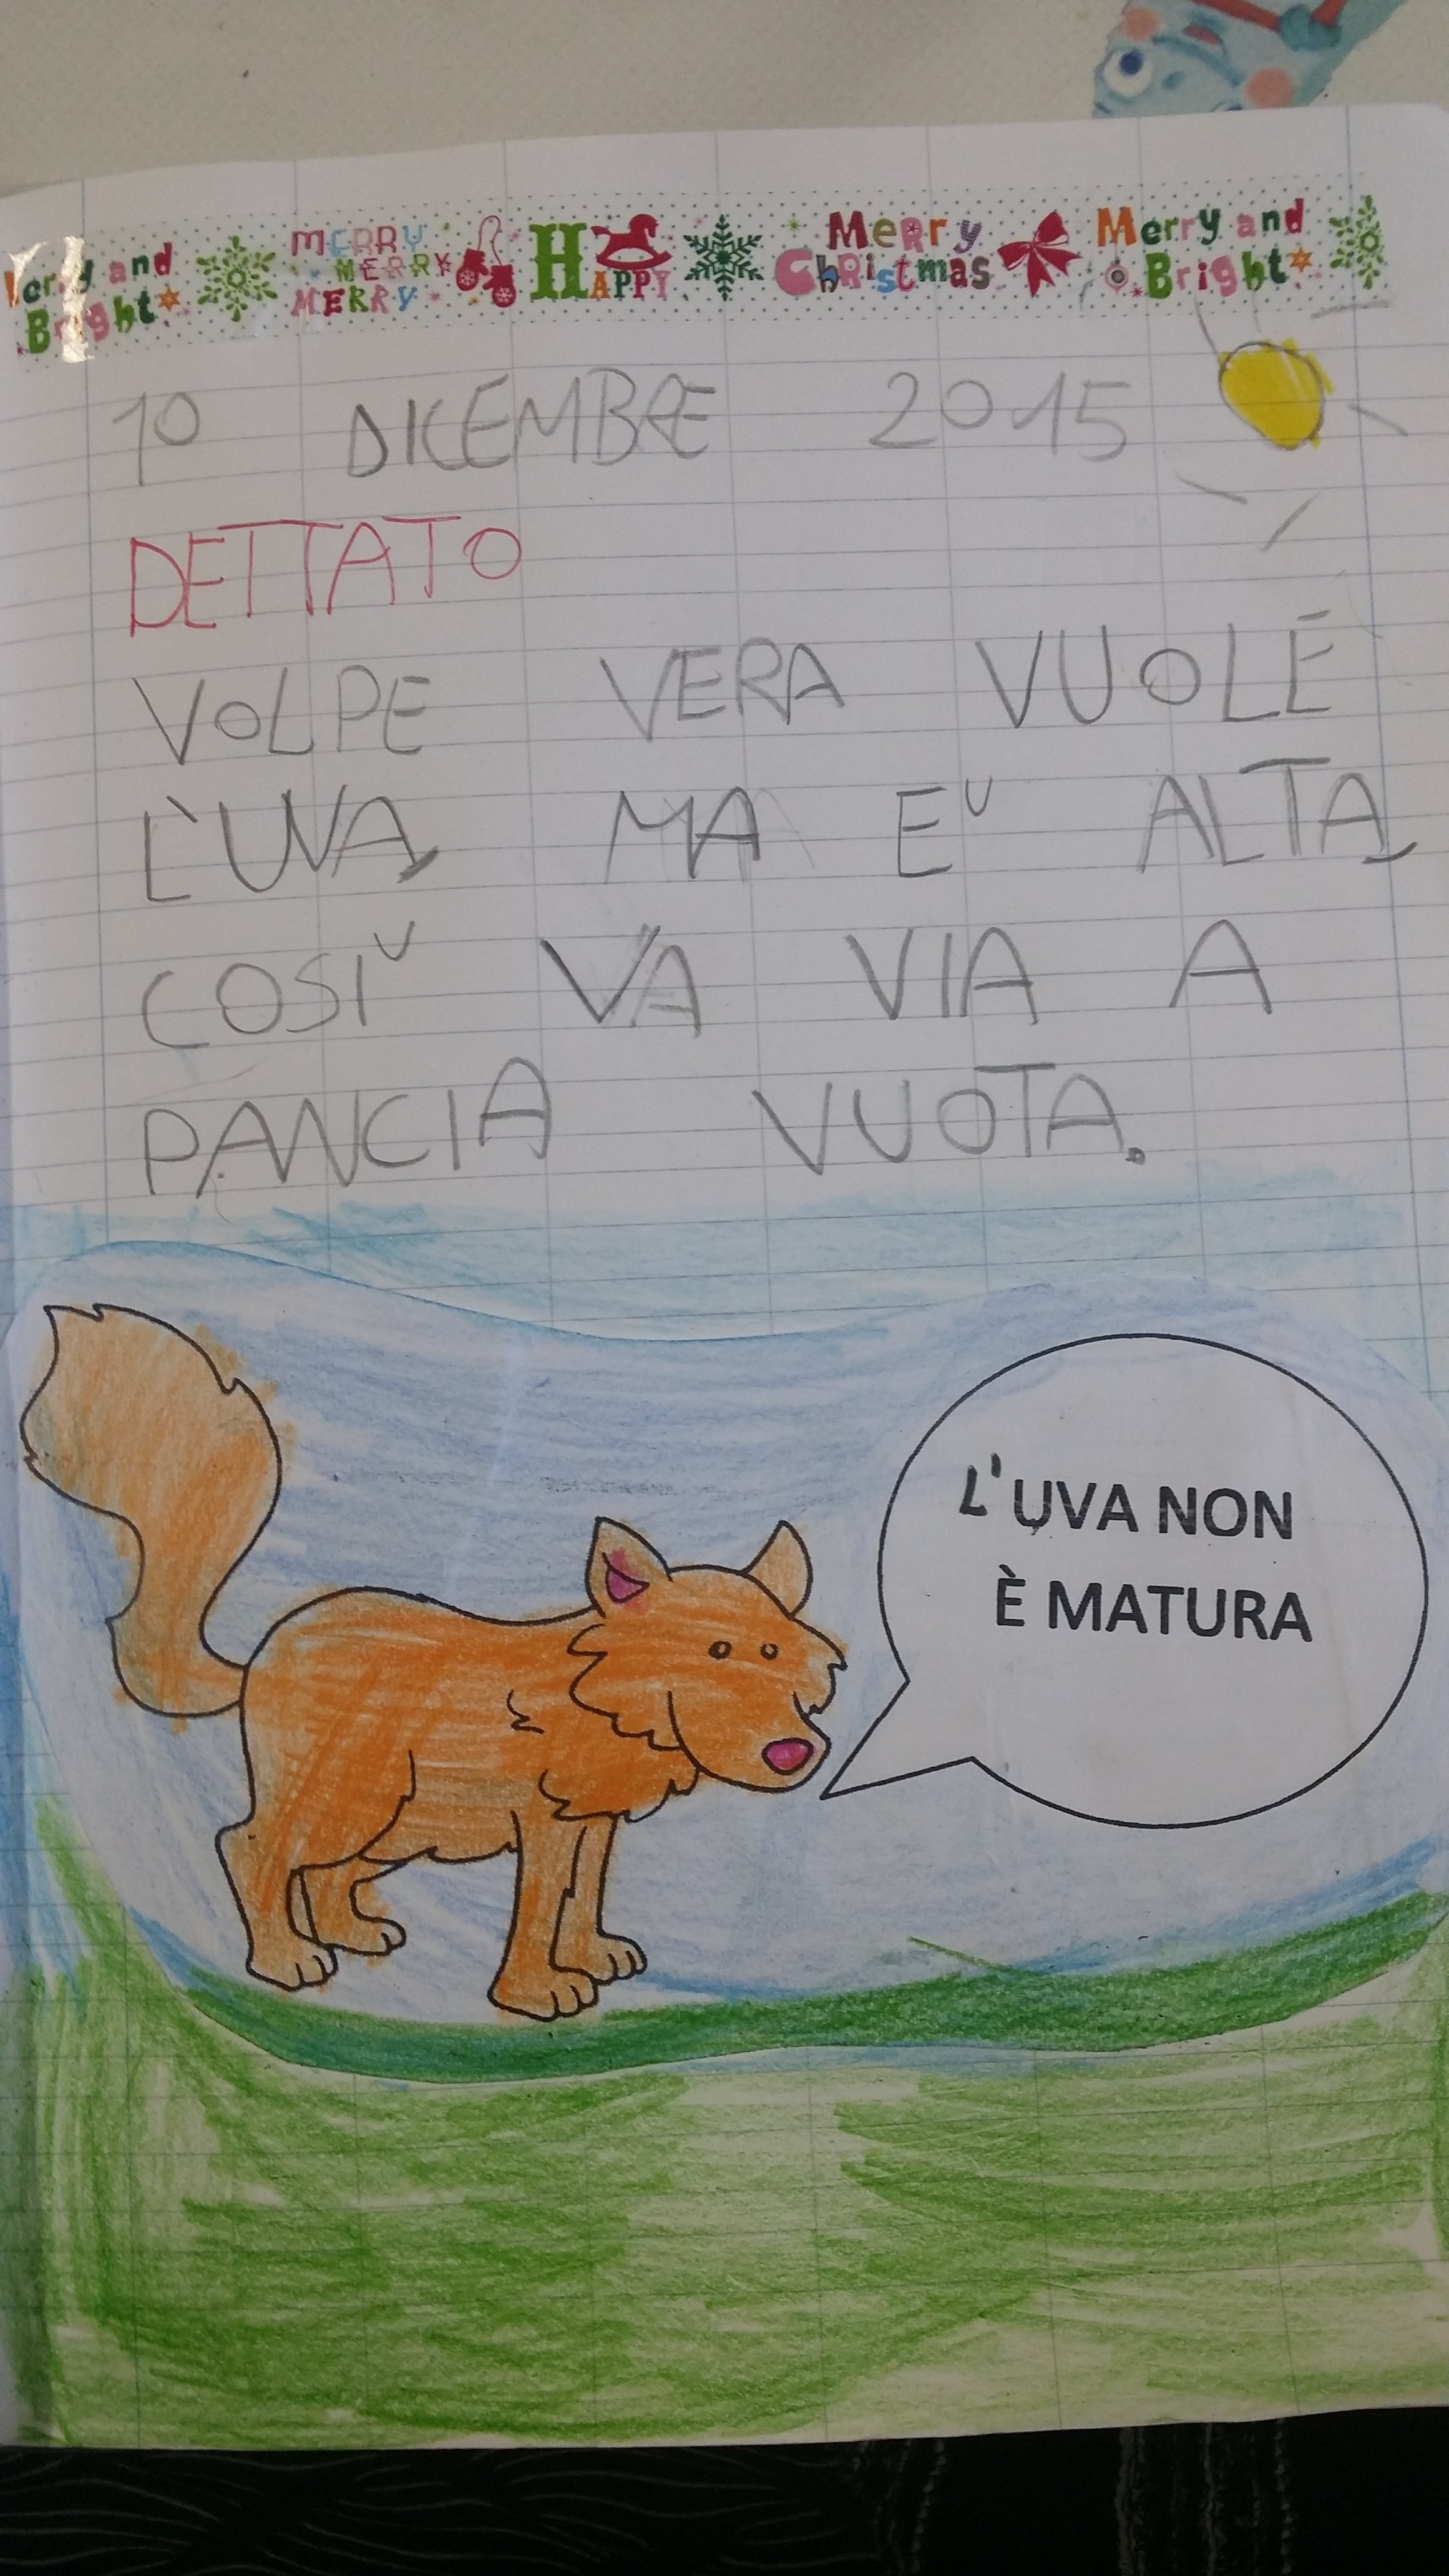 Merry and Bright MERRY MERRY MERRY HAPPY Merry Christmas Merry and Bright
1° DICEMBRE 2015
DETTATO
VOLPE VERA VUOLE
L'UVA, MA E' ALTA,
COSI' VA VIA A
PANCIA VUOTA.
L'UVA NON
È MATURA